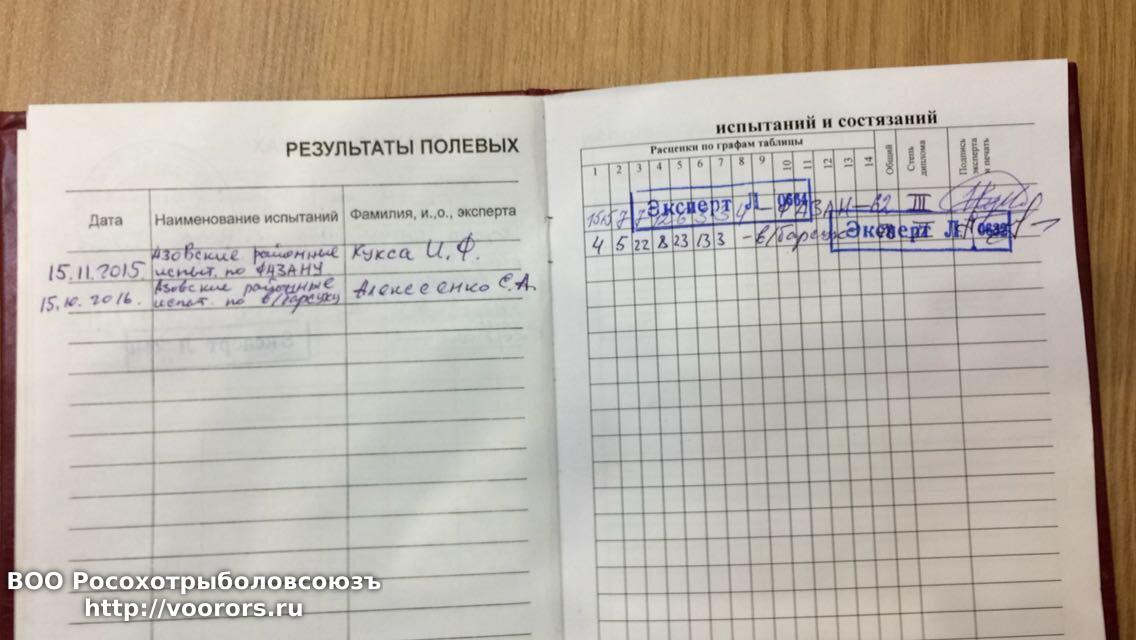 РЕЗУЛЬТАТЫ ПОЛЕВЫХ
Дата
Наименование испытаний
Фамилия, и.,о., эксперта
15.11.2015
Азовские районные
испыт. по ФАЗАНУ
Кукса И. Ф.
15.10.2016.
Азовские районные
испыт. по в/барсуку
Алексеенко С.А.
испытаний и состязаний
Расценки по графам таблицы
1 2 3 4 5 6 7 8 9 10 11 12 13 14
Общий
Степ диплома
Подпись эксперта и печать
Эксперт Л 0664
ФАЗАН III
4 5 22 8 23 13 3 - в/барсук
Эксперт Л 0632
ВОО Росохотрыболовсоюзъ
http://voorors.ru